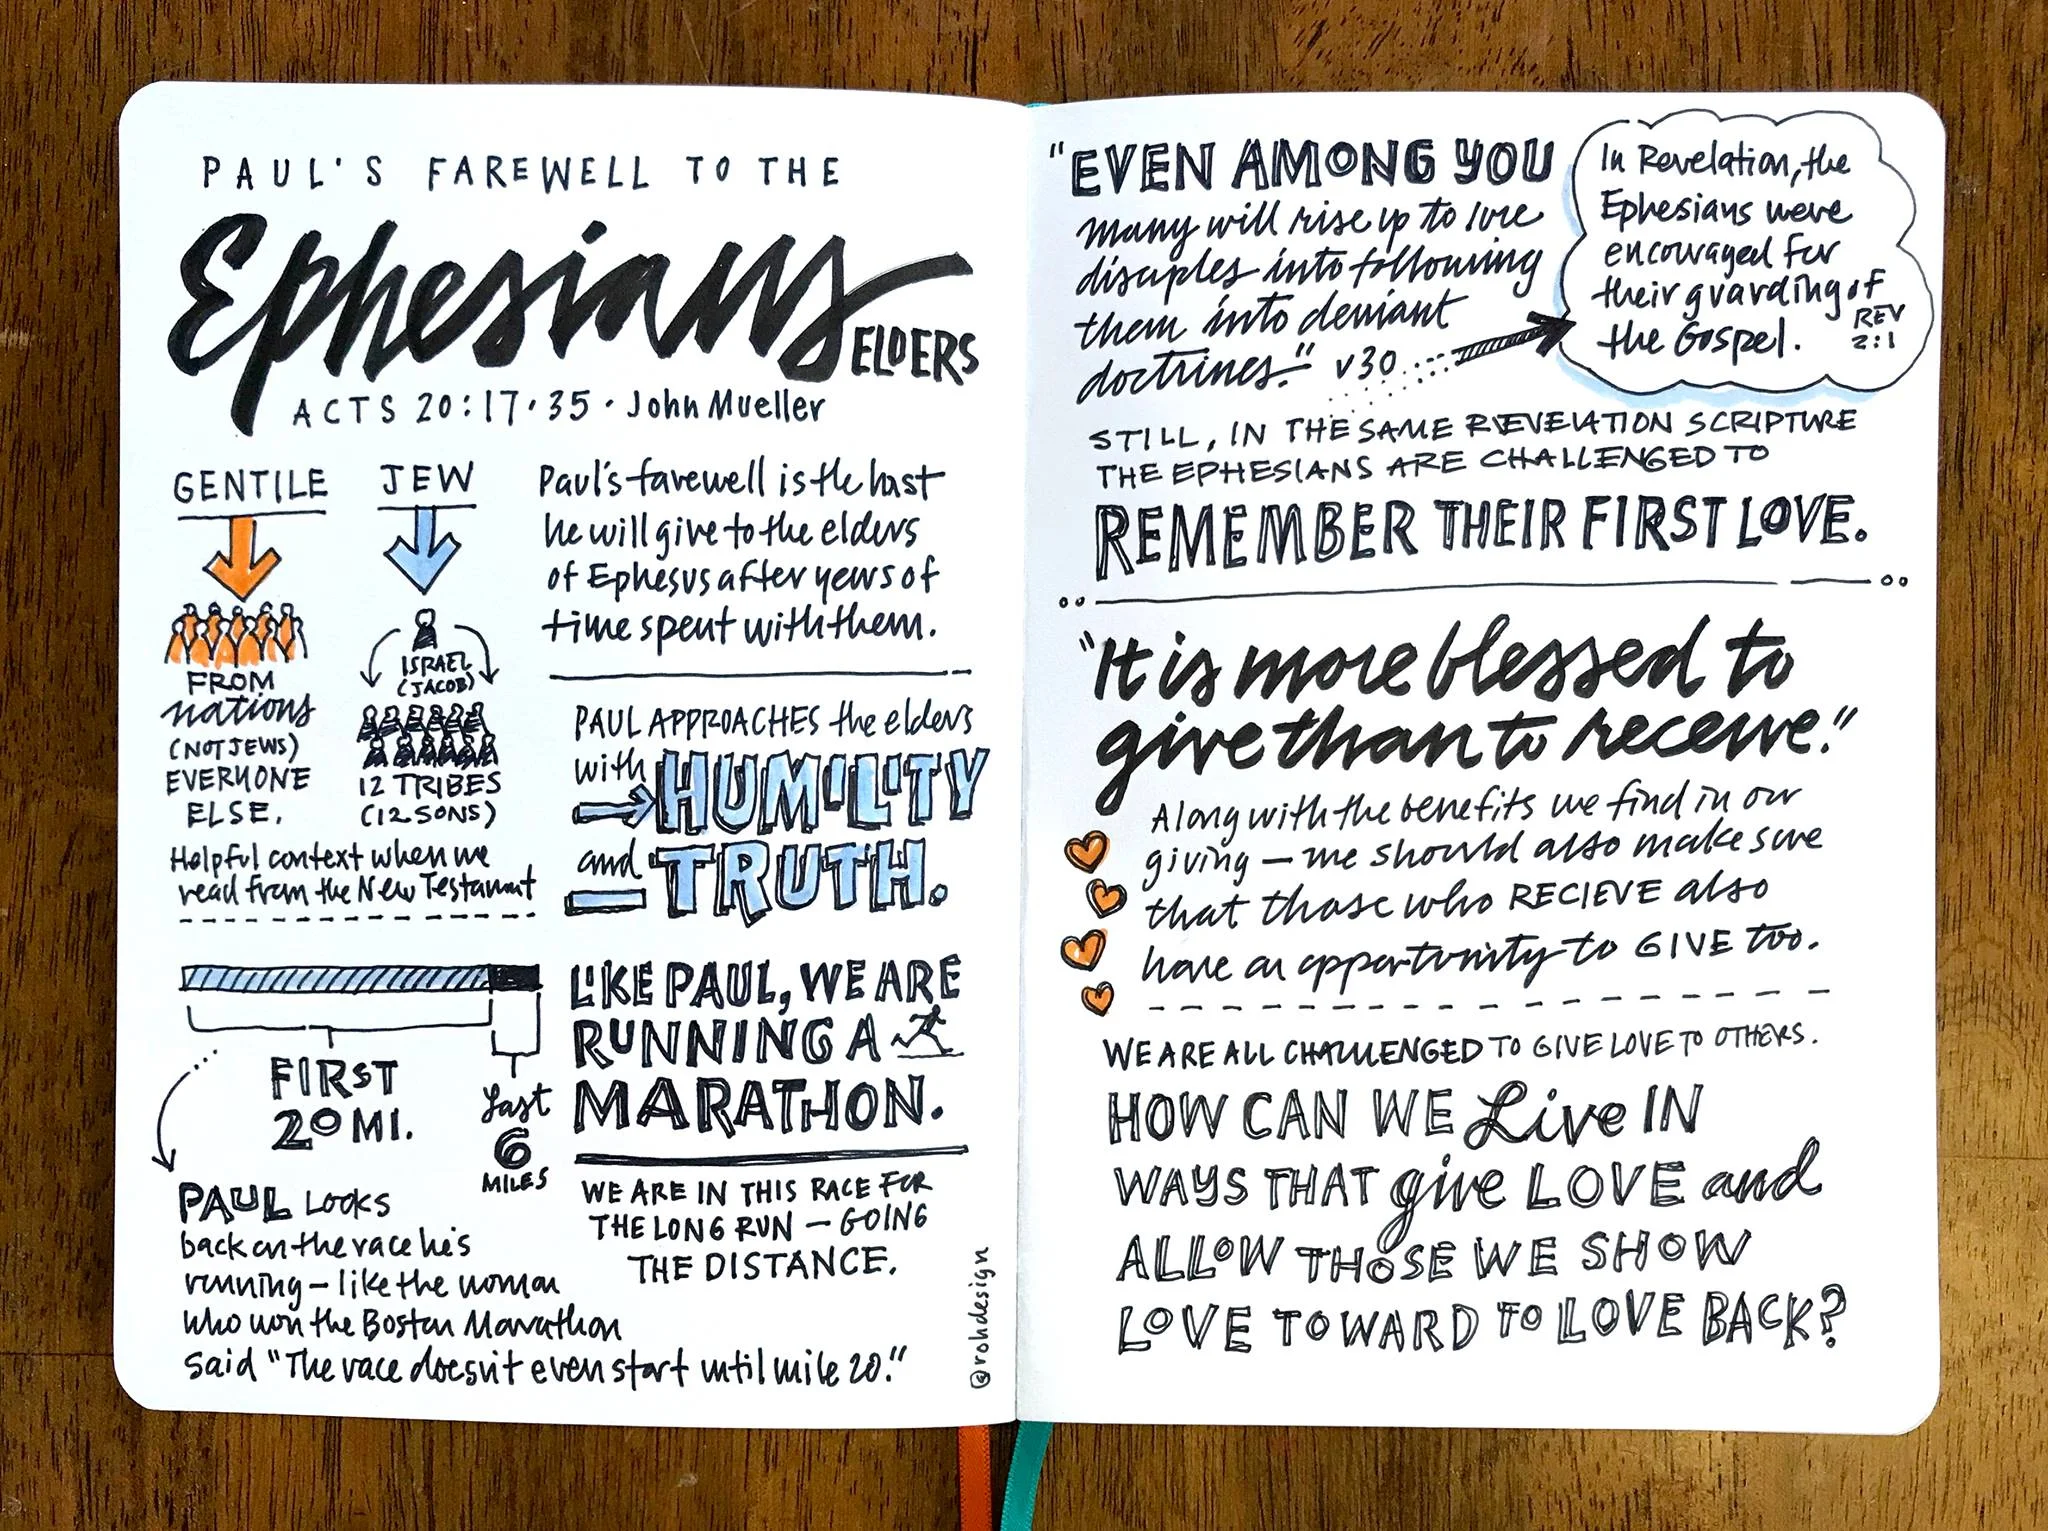 PAUL'S FAREWELL TO THE
Ephesians
ELDERS
ACTS 20:17·35 · John Mueller
GENTILE
FROM
nations
(NOT JEWS)
EVERYONE
ELSE.
JEW
ISRAEL
(JACOB)
12 TRIBES
(12 SONS)
Helpful context when we
read from the New Testament
Paul's farewell is the last
he will give to the elders
of Ephesus after years of
time spent with them.
PAUL APPROACHES the elders
with HUMILITY
and TRUTH.
FIRST
20 MI.
Last
6
MILES
PAUL Looks
back on the race he's
running – like the woman
who won the Boston Marathon
said "The race doesn't even start until mile 20."
LIKE PAUL, WE ARE
RUNNING A
MARATHON.
WE ARE IN THIS RACE FOR
THE LONG RUN – GOING
THE DISTANCE.
@rohdesign
"EVEN AMONG YOU
many will rise up to lure
disciples into following
them into deviant
doctrines." v30
In Revelation, the
Ephesians were
encouraged for
their guarding of
the Gospel.
REV
2:1
STILL, IN THE SAME REVELATION SCRIPTURE
THE EPHESIANS ARE CHALLENGED TO
REMEMBER THEIR FIRST LOVE.
"It is more blessed to
give than to receive."
Along with the benefits we find in our
giving – we should also make sure
that those who RECIEVE also
have an opportunity to GIVE too.
WE ARE ALL CHALLENGED TO GIVE LOVE TO OTHERS.
HOW CAN WE Live IN
WAYS THAT give LOVE and
ALLOW THOSE WE SHOW
LOVE TOWARD TO LOVE BACK?